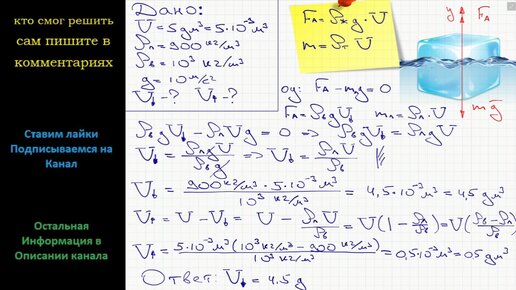 кто смог решить
сам пишите в
комментариях
Ставим лайки
Подписываемся на
Канал
Остальная
Информация в
Описании канала
Дано:
V = 5 дм³ = 5·10⁻³ м³
ρл = 900 кг/м³
ρв = 10³ кг/м³
g = 10 м/с²
V↓ - ? V↑ - ?
FA = ρж g · V
m = ρт · V
y FA
mg
oy: FA - mg = 0
FA = ρв g V↓ mл = ρл · V
ρв g V↓ - ρл V g = 0 => ρв g V↓ = ρл g V
V↓ = ρл g V / ρв g => V↓ = ρл V / ρв
V↓ = 900 кг/м³ · 5·10⁻³ м³ / 10³ кг/м³ = 4,5·10⁻³ м³ = 4,5 дм³
V↑ = V - V↓ = V - ρл V / ρв = V(1 - ρл/ρв) = V(ρв - ρл / ρв)
V↑ = 5·10⁻³ м³ (10³ кг/м³ - 900 кг/м³) / 10³ кг/м³ = 0,5·10⁻³ м³ = 0,5 дм³
Ответ: V↓ = 4,5 д